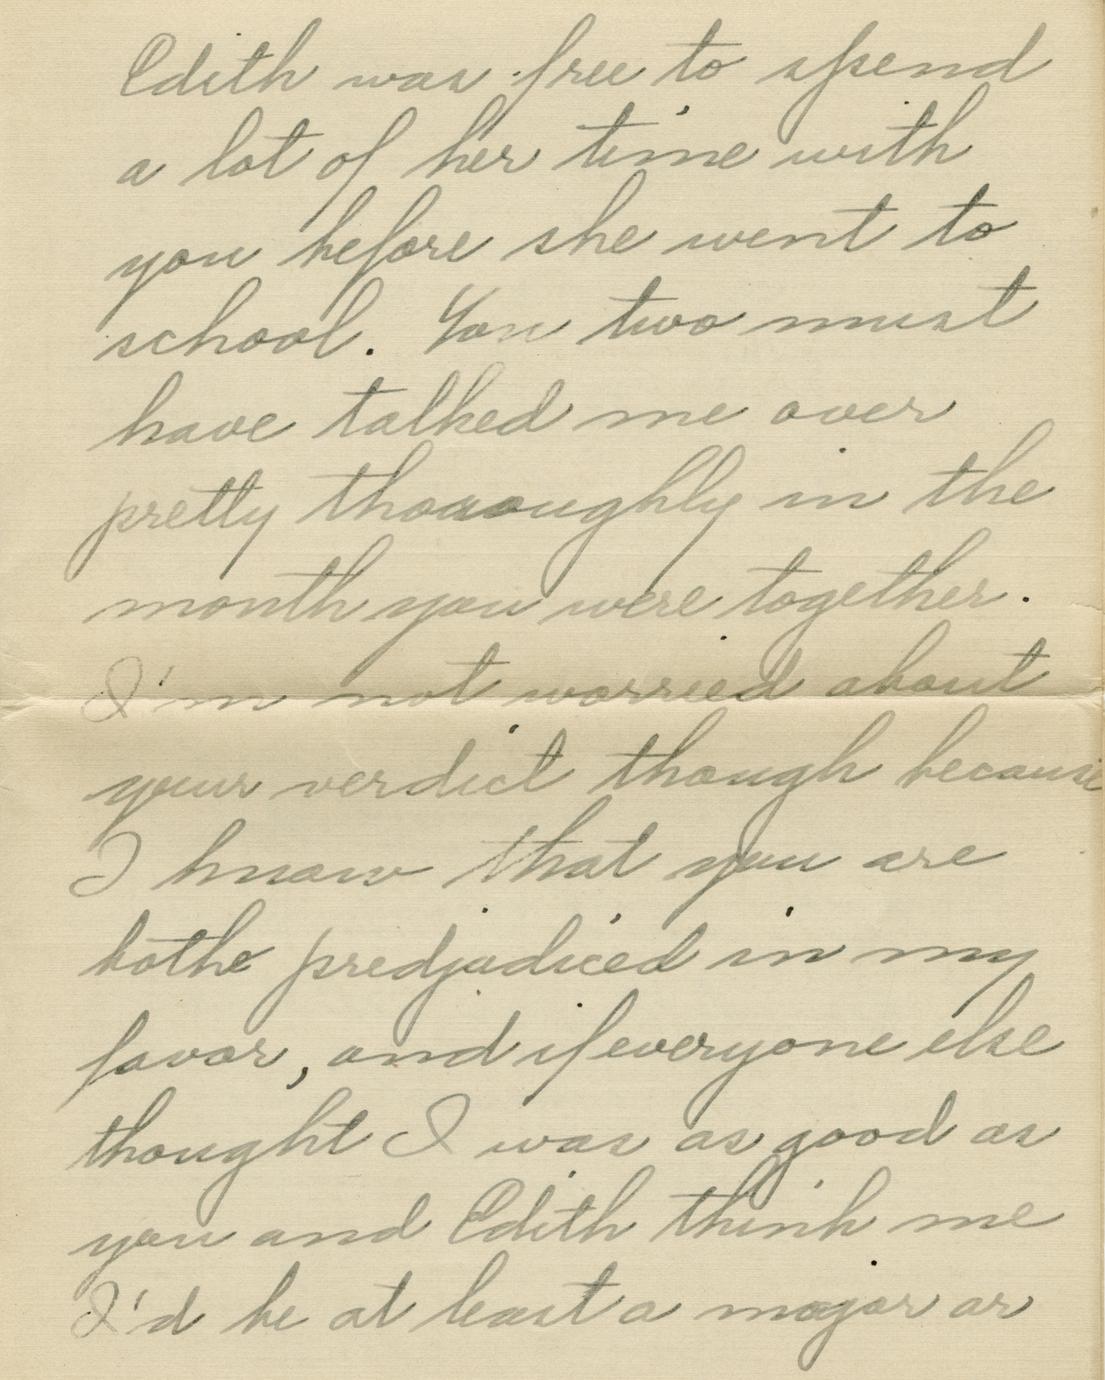 Edith was free to spend
a lot of her time with
you before she went to
school. You two must
have talked me over
pretty thoroughly in the
month you were together.
I'm not worried about
your verdict though because
I know that you are
bothe predjudiced in my
favor, and if everyone else
thought I was as good as
you and Edith think me
I'd be at least a major or